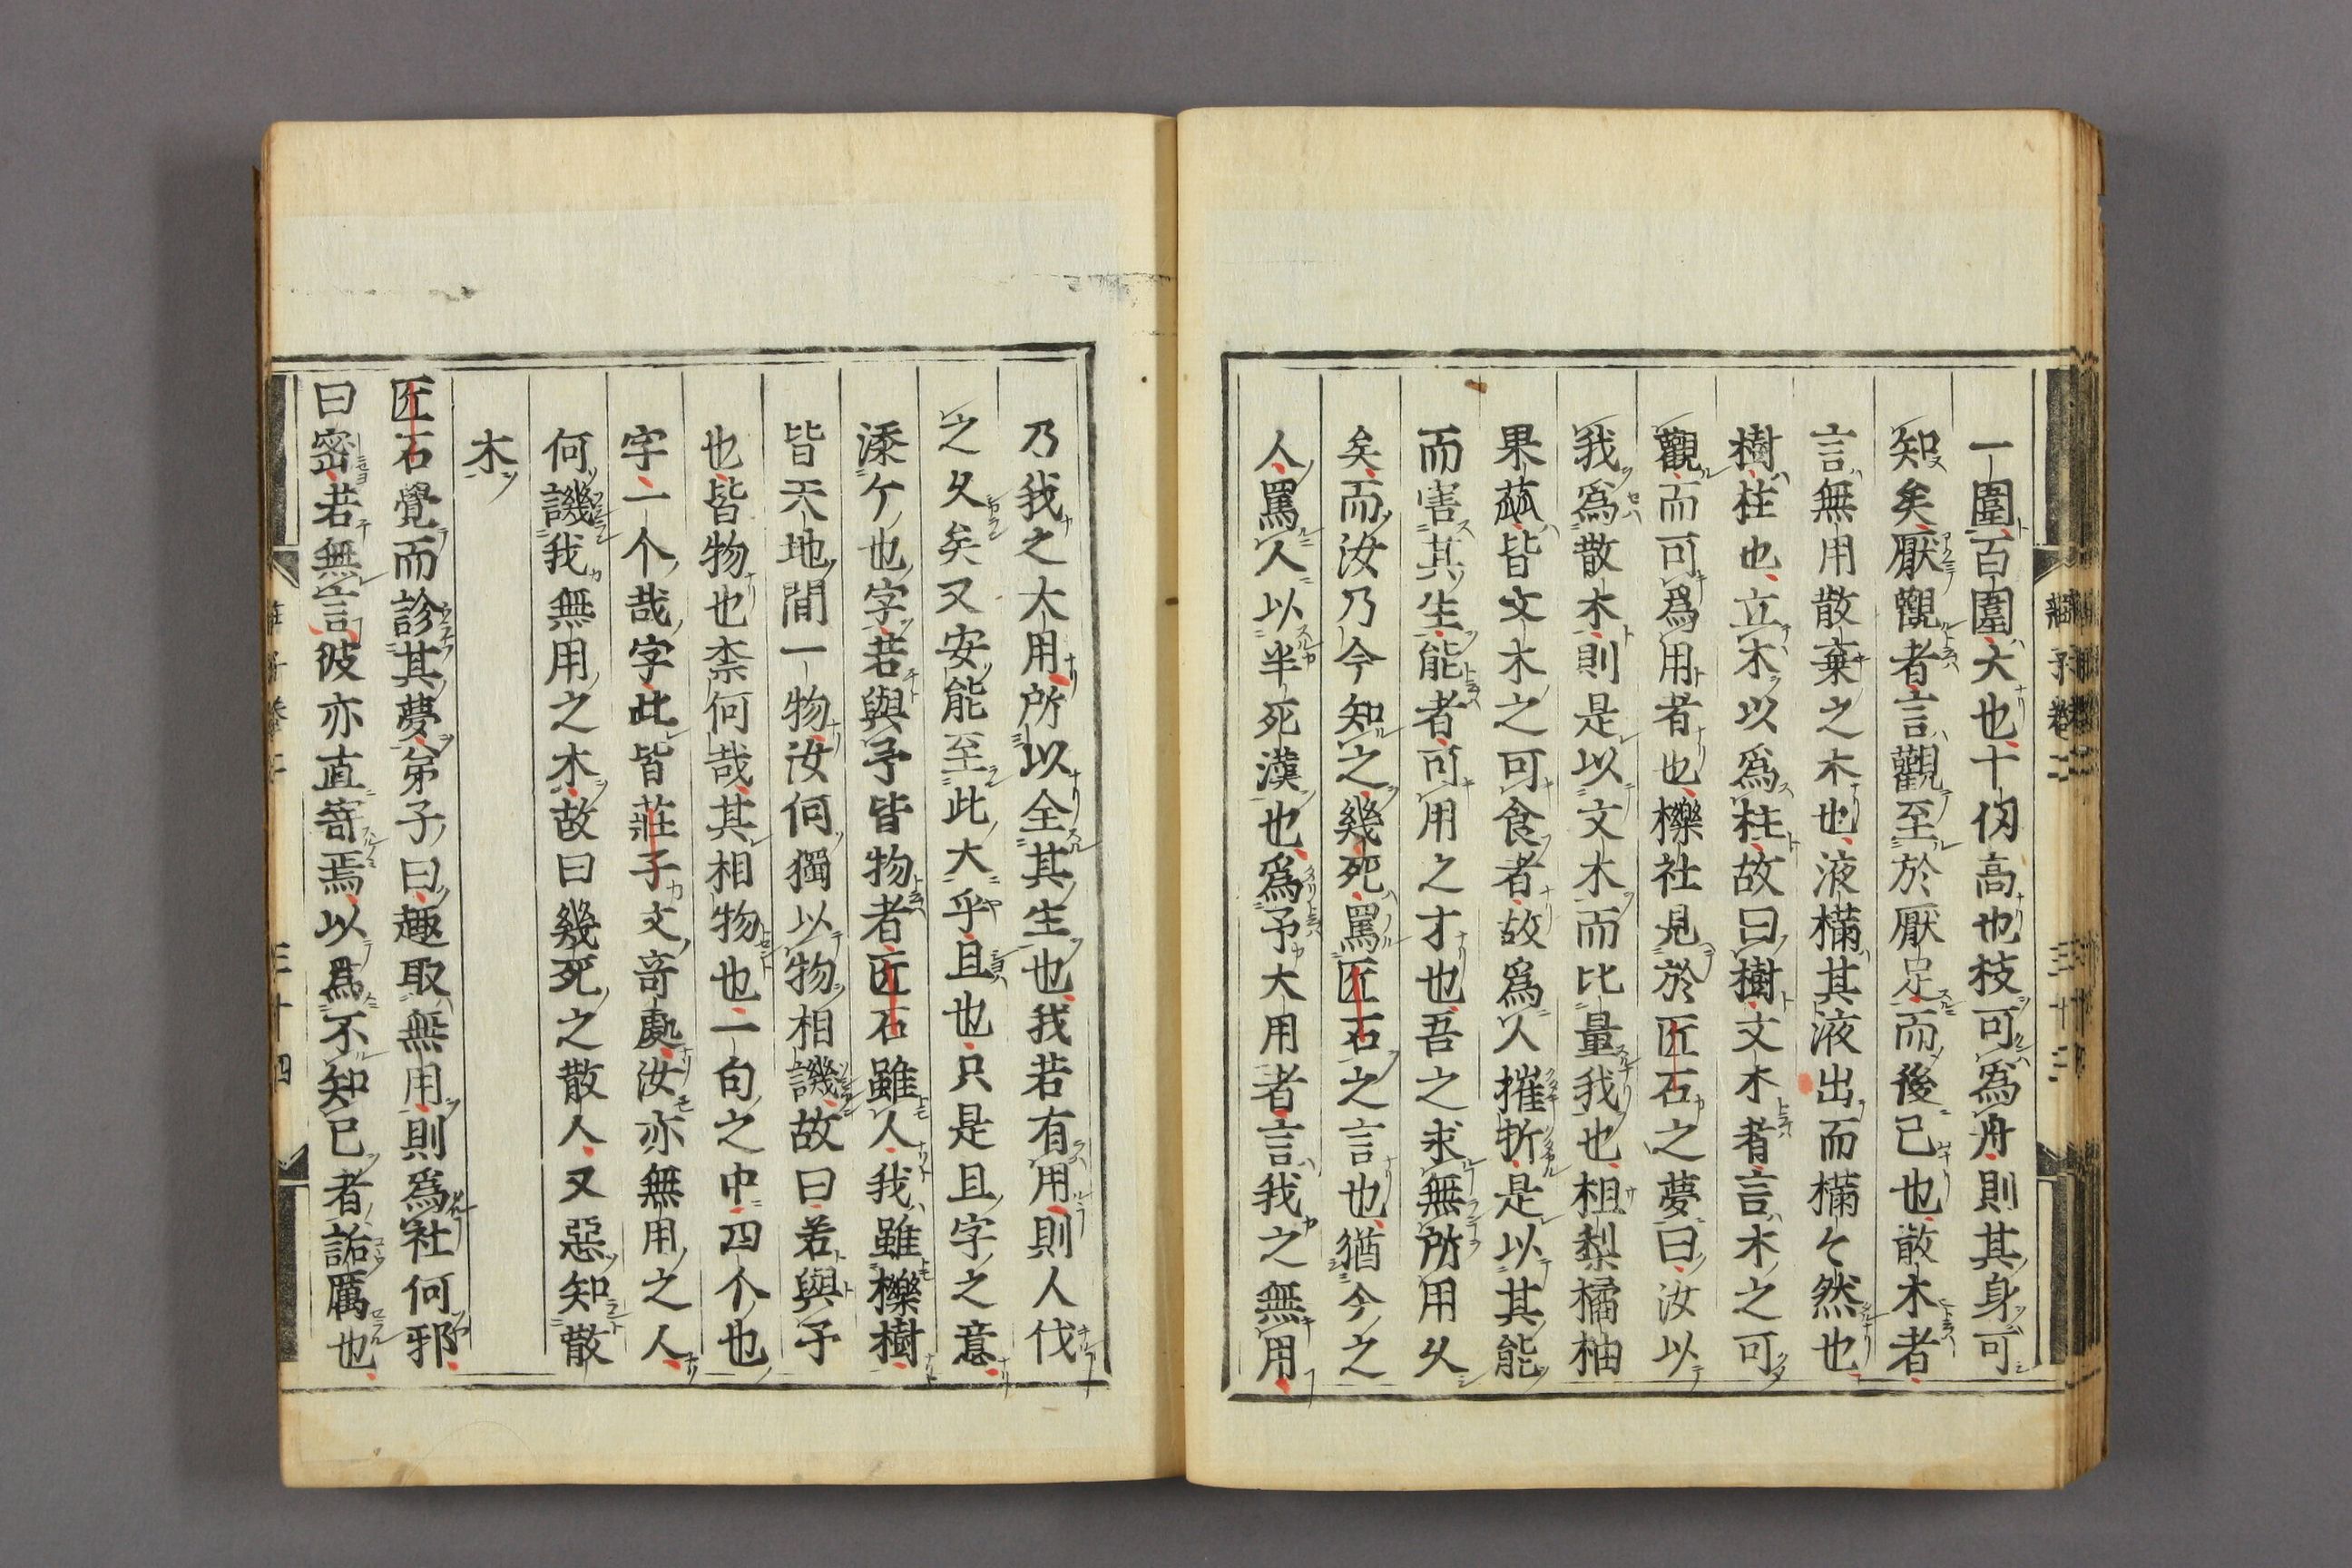 一圍百圍大也十仞高也枝可爲舟則其身可
知矣厭觀者言觀至於厭足而後已也散木者
言無用散棄之木也液樠其液出而樠々然也
樹柱也立木以爲柱故曰樹文木者言木之可
觀而可爲用者也櫟社見於匠石之夢曰汝以
我爲散木則是以文木而比量我也柤梨橘柚
果蓏皆文木之可食者故爲人摧折是以其能
而害其生能者可用之才也吾之求無所用久
矣而汝乃今知之幾死罵匠石之言也猶今之
人罵人以半死漢也爲予大用者言我之無用
乃我之大用所以全其生也我若有用則人伐
之久矣又安能至此大乎且也只是且字之意
添个也字若與予皆物者匠石雖人我雖櫟樹
皆天地間一物汝何獨以物相譏故曰若與予
也皆物也柰何哉其相物也一句之中四个也
字一个哉字此皆莊子文奇處汝亦無用之人
何譏我無用之木故曰幾死之散人又惡知散
木
匠石覺而診其夢弟子曰趣取無用則爲社何邪
曰密若無言彼亦直寄焉以爲不知己者詬厲也
莊子卷二
三十三
三十四